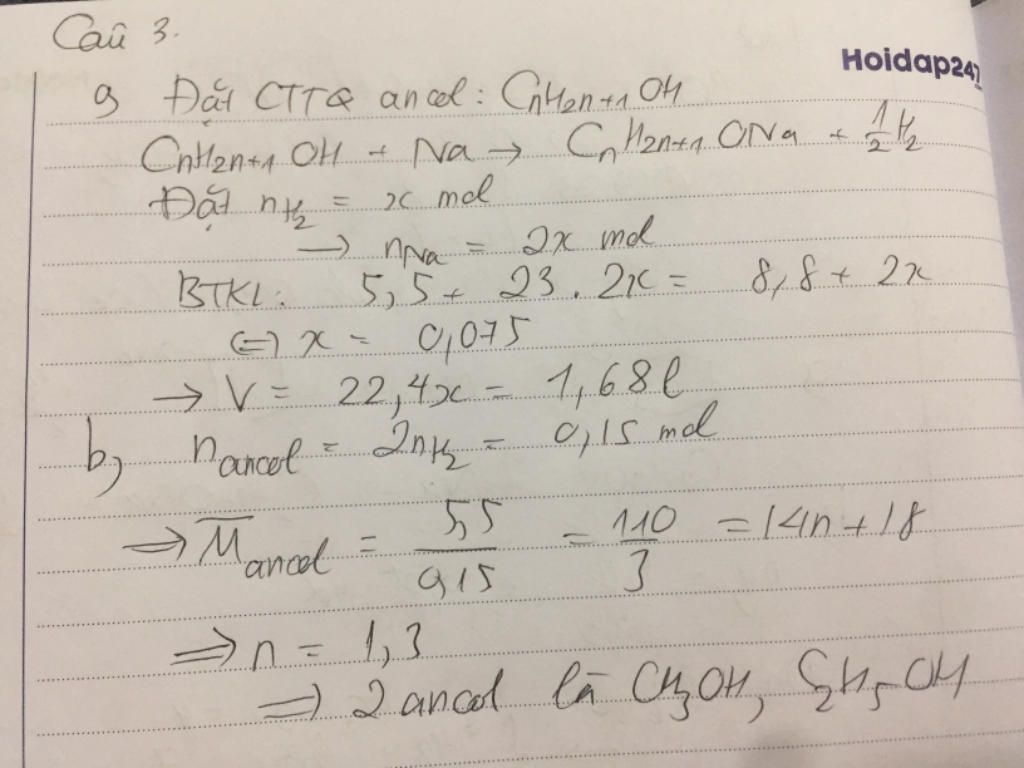 Câu 3.
Hoidap247
a, Đặt CTTQ ancol: CnH2n+1OH
CnH2n+1OH + Na → CnH2n+1ONa + 1/2 H2
Đặt nH2 = x mol
→ nNa = 2x mol
BTKL: 5,5 + 23 . 2x = 8,8 + 2x
⇔ x = 0,075
→ V = 22,4x = 1,68 l
b, nancol = 2nH2 = 0,15 mol
⇒ M̅ancol = 5,5/0,15 = 110/3 = 14n + 18
⇒ n = 1,3
⇒ 2 ancol là CH3OH, C2H5OH